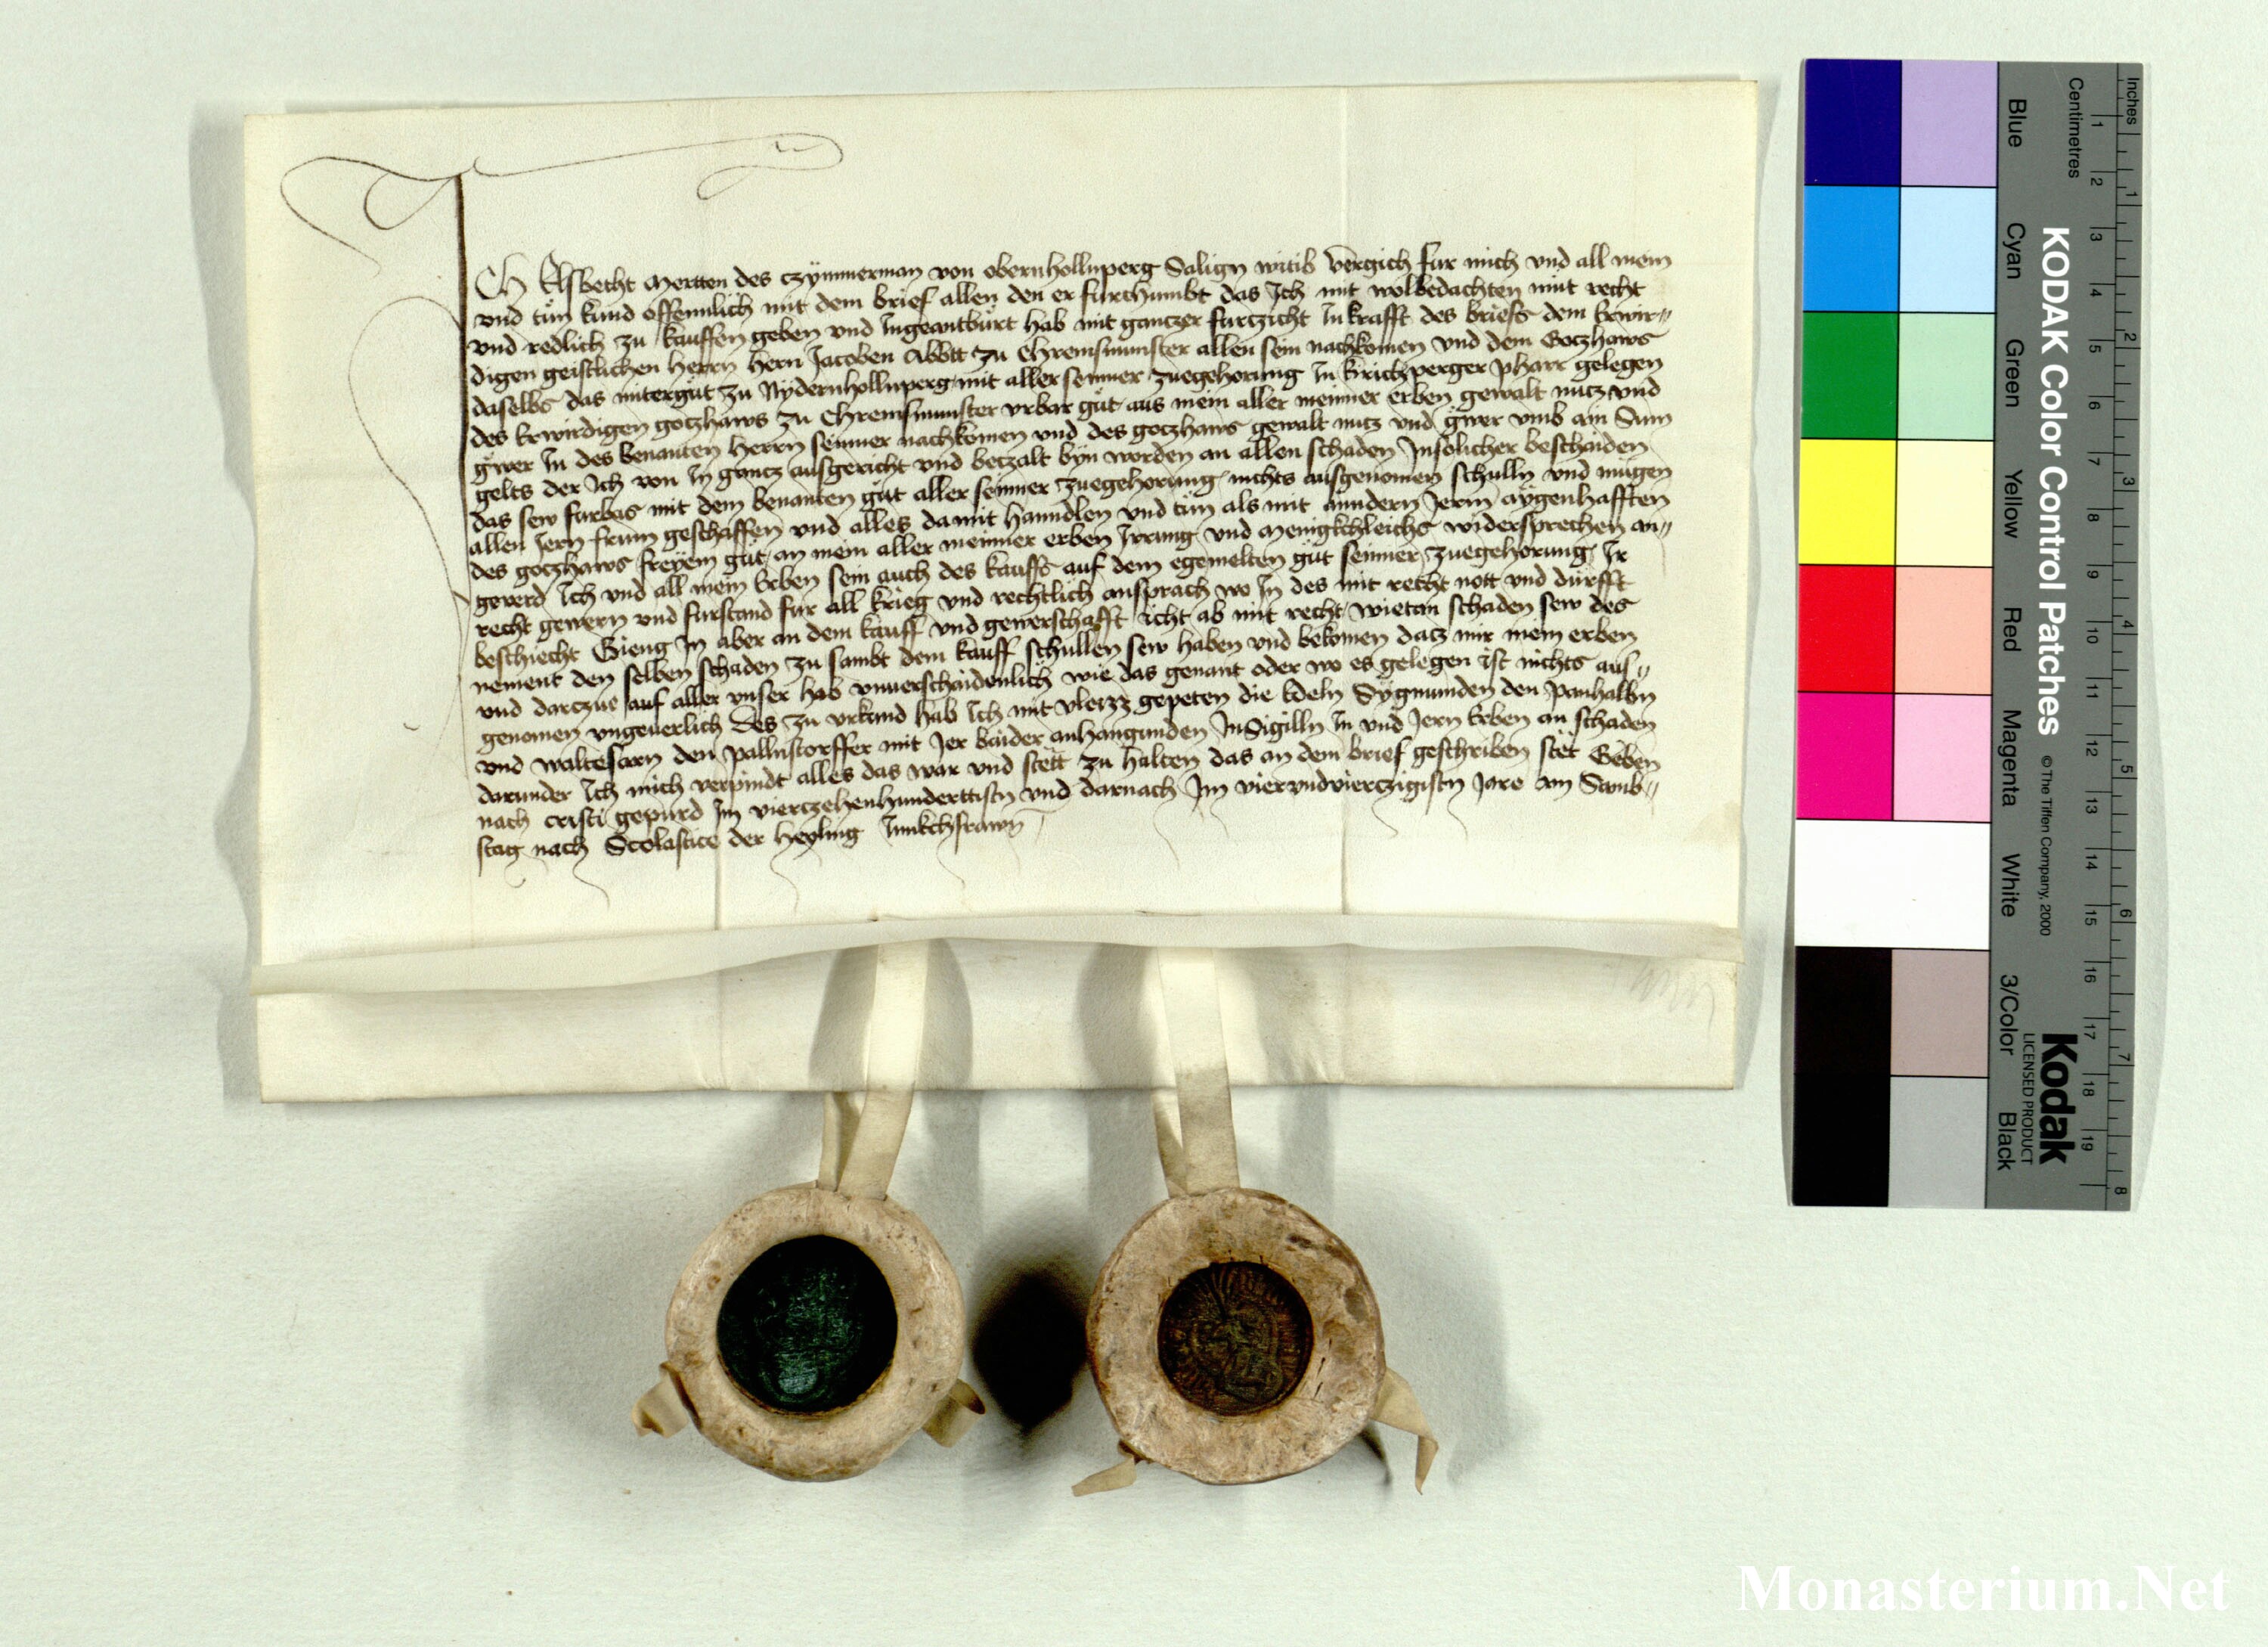 ICH Elsbecht Mertten des czÿmmerman von obernhollnperg Salign witib vergich fur mich vnd all mein
vnd tün kund offennlich mit dem brief allen den er furchumbt das Ich mit wolbedachten müt recht
vnd redlich zu kauffen geben vnd Ingeantburt hab mit ganczer furczicht In krafft des briefs dem Erwir〃
digen geistlichen Herrn Hern Jacoben Abbtt zu Chremsmunster allen sein nachkomen vnd dem Goczhaws
daselbs das mitergüt zu Nÿdernhollnperg mit aller seinner zuegehorung In kirichperger pharr gelegen
des Erwirdigen goczhaws zu Chremsmunster vrbar güt aus mein aller meinner erben gewalt nucz vnd
gwer In des benanten Herrn seinner nachkomen vnd des goczhaws gewalt nucz vnd gwer vmb ain Sum
gelts der Ich von In gancz ausgericht vnd beczalt byn worden an allen schaden Insolicher beschaiden
das sew furbas mit dem benanten güt aller seinner zuegehorung nichts ausgenomen schulln vnd mugen
allen Jern frum geschaffen vnd alles damit hanndlen vnd tün als mit anndern Jerm aÿgenhafften
des goczhaws freÿem güt an mein aller meinner erben Irrung vnd Menigkchleichs widersprechen an〃
geuerd Ich vnd all mein Erben sein auch des kauffs auf dem egemelten güt seinner zuegehorung Ir
recht gewern vnd furstand fur all krieg vnd rechtlich ansprach wo In des mit recht nott vnd dürfft
beschiecht Gieng In aber an dem kauff vnd gewerschafft icht ab mit recht wietan schaden sew des
nement den selben schaden zu sambt dem kauff schullen sew haben vnd bekomen dacz mir mein erben
vnd darczue auf aller vnser hab vnuerschaidenlich wie das genant oder wo es gelegen ist nichts aus〃
genomen vngeuerlich Des zu vrkund hab Ich mit vleizz gepeten die Edeln Sÿgmunden den Panhallm
vnd Waltesarn den Pallnstorffer mit Jer baider anhangunden InSigilln In vnd Jern Erben an schaden
darunder Ich mich verpindt alles das war vnd stett zu halten das an dem brief geschriben stet Geben
nach cristi gepurd Im vierczehenhunderttistn vnd darnach Im viervndvierczigistn Jare am Samb〃
stag nach Scolastice der Heyling Junkchfrawn
KODAK Color Control Patches
© The Tiffen Company, 2000
Kodak
LICENSED PRODUCT
Inches
Centimetres
1 2 3 4 5 6 7 8
1 2 3 4 5 6 7 8 9 10 11 12 13 14 15 16 17 18 19
Blue
Cyan
Green
Yellow
Red
Magenta
White
3/Color
Black
Monasterium.Net